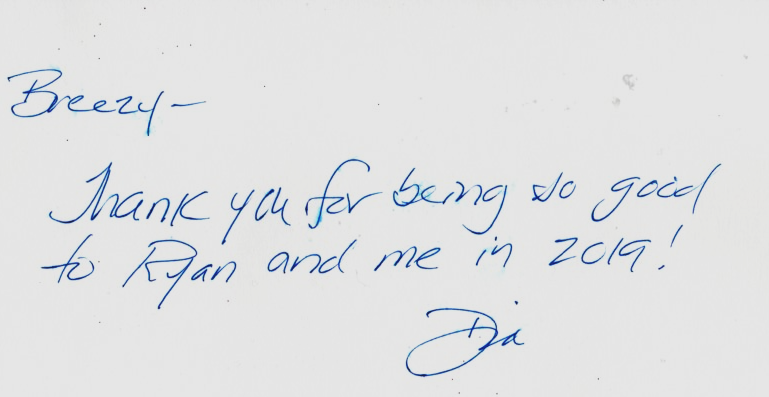 Breezy-
Thank you for being so good
to Ryan and me in 2019!